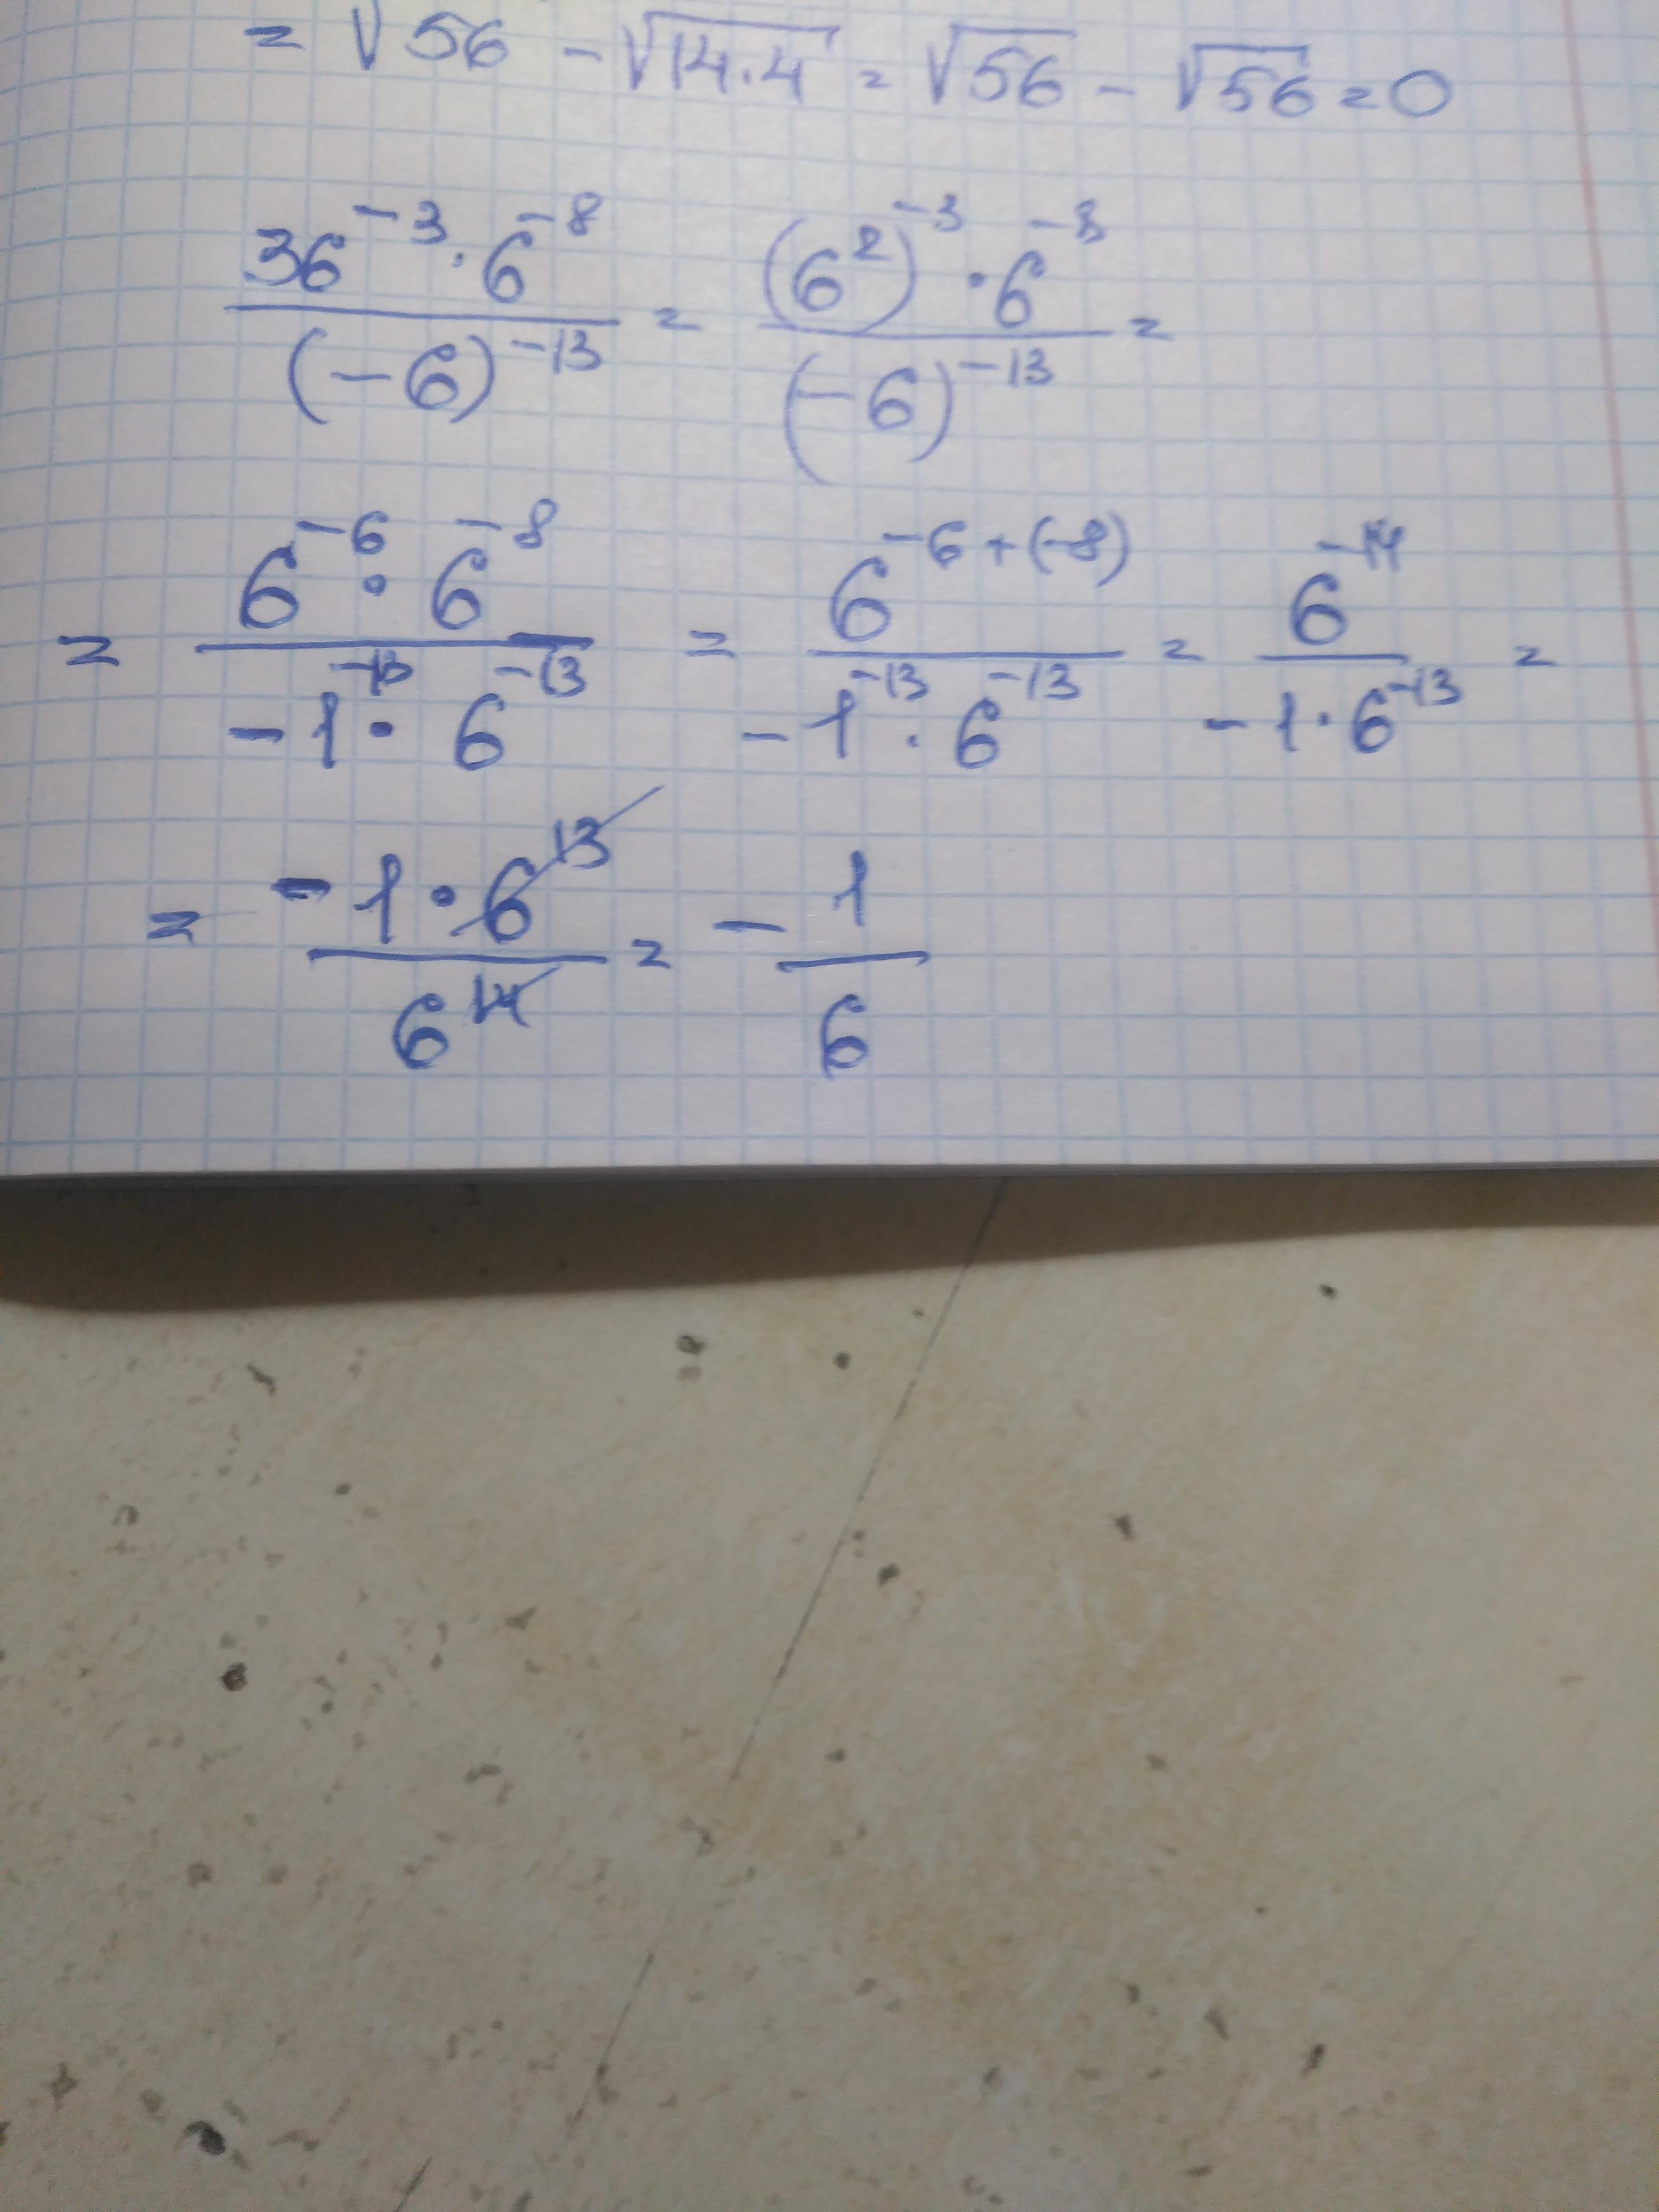 = √56 - √14·4 = √56 - √56 = 0
36^-3 · 6^-8 / (-6)^-13 = (6^2)^-3 · 6^-8 / (-6)^-13 =
= 6^-6 · 6^-8 / -1^-13 · 6^-13 = 6^-6+(-8) / -1^-13 · 6^-13 = 6^-14 / -1·6^-13 =
= -1·6^13 / 6^14 = - 1/6